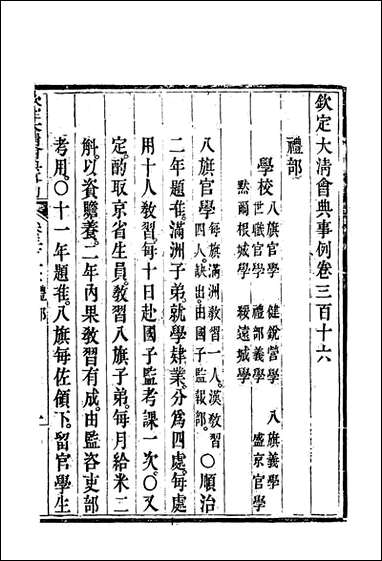 欽定大清會典事例卷三百十六
禮部
學校 八旗官學 健銳營學 八旗義學
世職官學 禮部義學 盛京官學
黙爾根城學 綏遠城學
八旗官學 每旗滿洲教習一人。漢教習
四人。缺出。由國子監報部。○順治
二年題准。滿洲子弟。就學肄業。分為四處。每處
用十人教習。每十日赴國子監考課一次。○又
定。酌取京省生員。教習八旗子弟。每月給米二
斛。以資贍養。二年內果教習有成。由監咨吏部
考用。○十一年題准。八旗每佐領下。留官學生